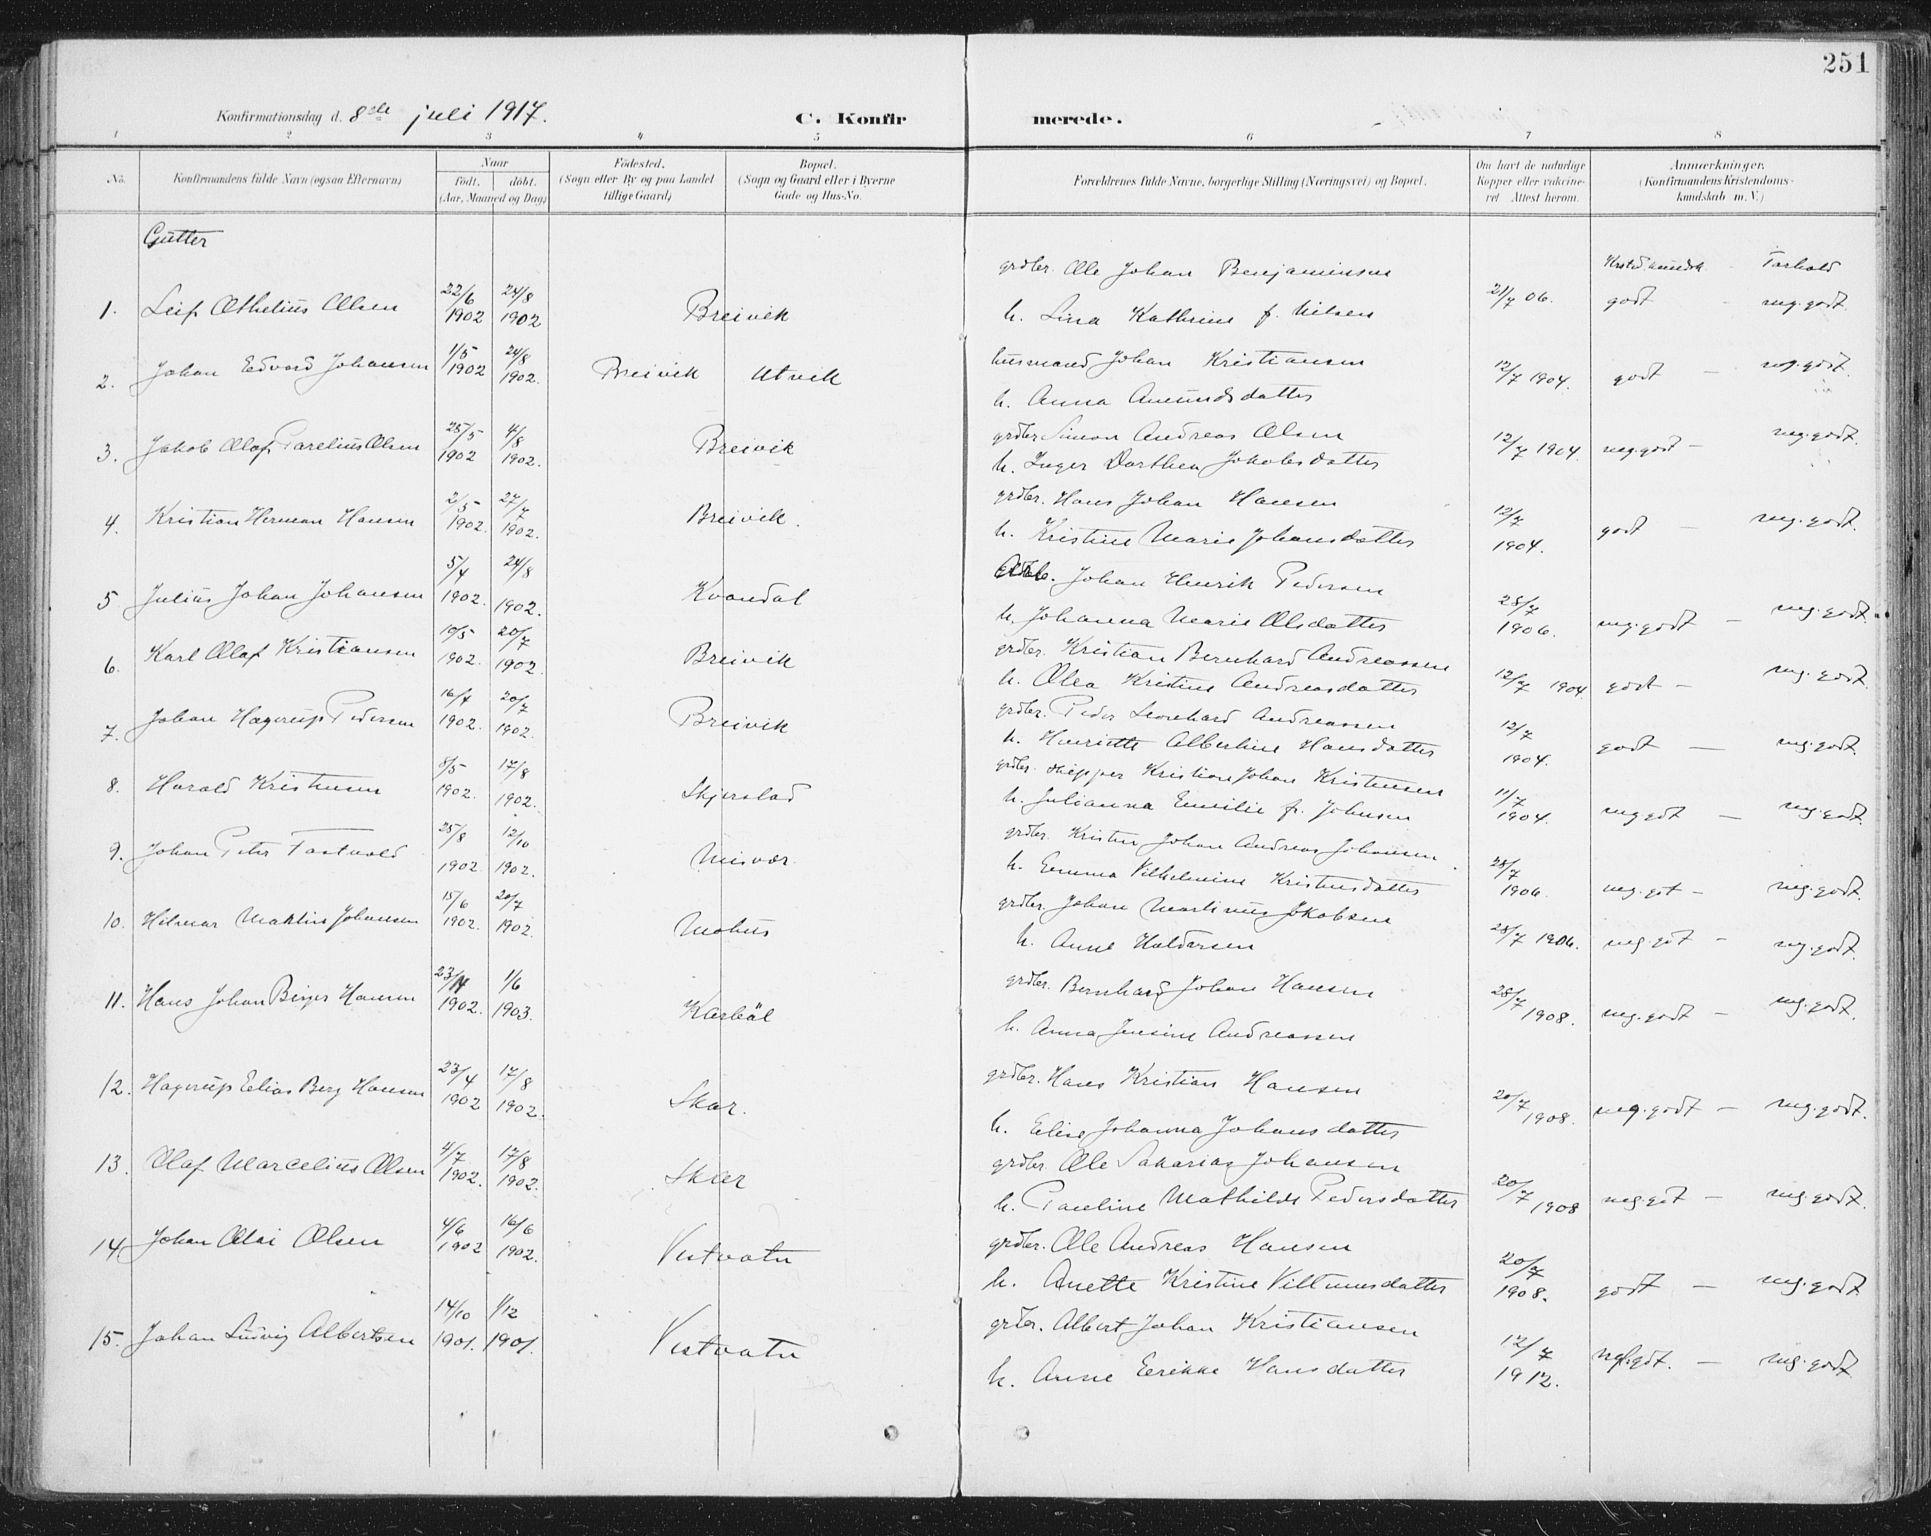 251
Konfirmationsdag d. 8de juli 1917.
C. Konfirmerede.
1 2 3 4 5 6 7 8
No.
Konfirmandens fulde Navn (ogsaa Efternavn)
Naar
födt. döbt.
(Aar, Maaned og Dag)
Födested.
(Sogn eller By og paa Landet
tillige Gaard)
Bopæl.
(Sogn og Gaard eller i Byerne
Gade og Hus-No.
Forældrenes fulde Navne, borgerlige Stilling (Næringsvei) og Bopæl.
Om havt de naturlige
Kopper eller vakcine-
ret Attest herom.
Anmærkninger.
(Konfirmandens Kristendoms-
kundskab m. V.)
Gutter
Forhold
1. Leif Othelius Olsen 22/6 1902 24/8 1902 Breivik
grdbr. Ole Johan Benjaminsen
h. Lina Kathrine f. Nilsen
21/7 06. godt - meg.godt
2. Johan Edvard Johansen 1/5 1902 24/8 1902. Breivik Utvik
husmand Johan Kristiansen
h. Anna Amundsdatter
12/7 1904. godt - meg.godt.
3. Jakob Olaf Parelius Olsen 28/5 1902 4/8 1902. Breivik
grdbr. Simon Andreas Olsen
h. Inger Dorthea Jakobsdatter
12/7 1904. meg.godt - meg.godt.
4. Kristian Herman Hansen 2/5 1902. 27/7 1902. Breivik.
grdbr. Hans Johan Hansen
h. Kristine Marie Johansdatter
12/7 1904. godt - meg.godt.
5 Julius Johan Johansen 5/4 1902. 24/8 1902. Kvandal
Johan Henrik Pedersen
h. Johanna Marie Olsdatter
28/7 1906. meg.godt - meg.godt.
6. Karl Olaf Kristiansen 19/5 1902. 20/7 1902. Breivik
grdbr. Kristian Bernhard Andreassen
h. Olea Kristine Andreasdatter
12/7 1904 godt - meg.godt.
7. Johan Hagerup Pedersen 16/4 1902. 20/7 1902. Breivik
grdbr. Peder Leonhard Andreassen
h. Henriette Albertine Hansdatter
12/7 1904. godt - meg.godt.
8. Harald Kristensen 8/5 1902. 17/8 1902. Skjerstad
grdbr. skipper Kristian Johan Kristensen
h. Julianna Emilie f. Johnsen
11/7 1904. meg godt - meg.godt.
9. Johan Peter Tostvold 25/8 1902. 12/10 1902. Misvær
grdbr. Kristen Johan Andreas Johansen.
h. Emma Vilhelmine Kristensdatter
28/7 1906. meg.got - meg.godt.
10. Hilmar Martin Johansen 15/6 1902. 20/7 1902. Mohus
grdbr. Johan Martinus Jakobsen
h. Anne Haldorsen
28/7 1906. meg.got - meg.godt.
11. Hans Johan Birger Hansen 23/11 1902. 1/6 1903. Karbøl
grdbr. Bernhard Johan Hansen
h. Anna Jensine Andreassen
28/7 1908. meg.godt - meg.godt.
12. Hagerup Elias Berg Hansen 23/4 1902 17/8 1902. Skar.
grdbr. Hans Kristian Hansen
h. Elise Johanna Johansdatter
20/7 1908. meg.godt - meg.godt.
13. Olaf Marcelius Olsen 4/7 1902. 17/8 1902. Skar
grdbr. Ole Sakarias Johansen
h. Pauline Mathilde Pedersdatter
20/7 1908 meg.got - meg.godt.
14. Johan Olai Olsen 4/6 1902 16/6 1902. Vestvatn
grdbr. Ole Andreas Hansen
h. Anette Kristine Viltmusdatter
20/7 1908. godt - meg.godt.
15. Johan Ludvig Albertsen 14/10 1901. 1/12 1901. Vestvatn
grdbr. Albert Johan Kristiansen
h. Anne Erikke Hansdatter
12/7 1912. meg.gdt. - meg.godt.